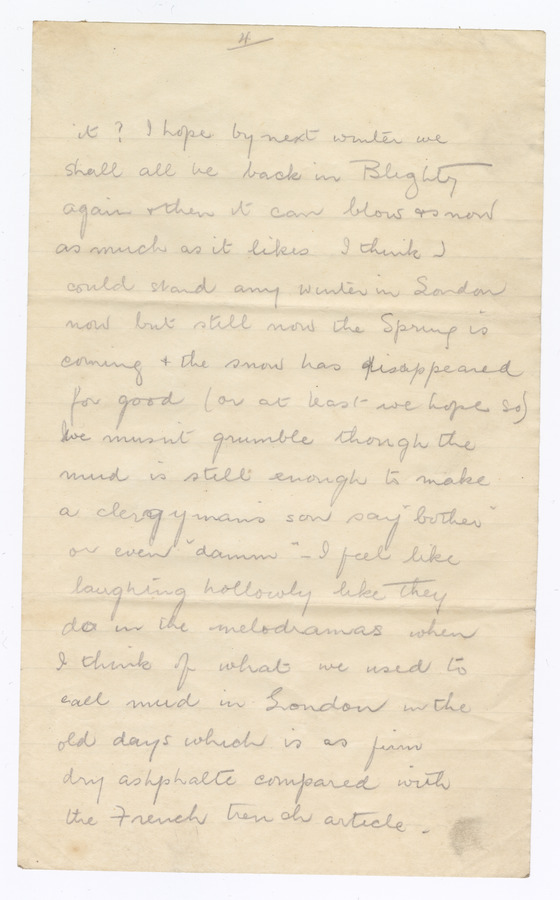 4
it? I hope by next winter we
shall all be back in Blighty
again & then it can blow & snow
as much as it likes I think I
could stand any winter in London
now but still now the Spring is
coming & the snow has disappeared
for good (or at least we hope so)
we musn't grumble though the
mud is still enough to make
a clergyman's son say "bother"
or even "damm" - I feel like
laughing hollowly like they
do in the melodramas when
I think of what we used to
call mud in London in the
old days which is as firm
dry ashphalte compared with
the French trench article.